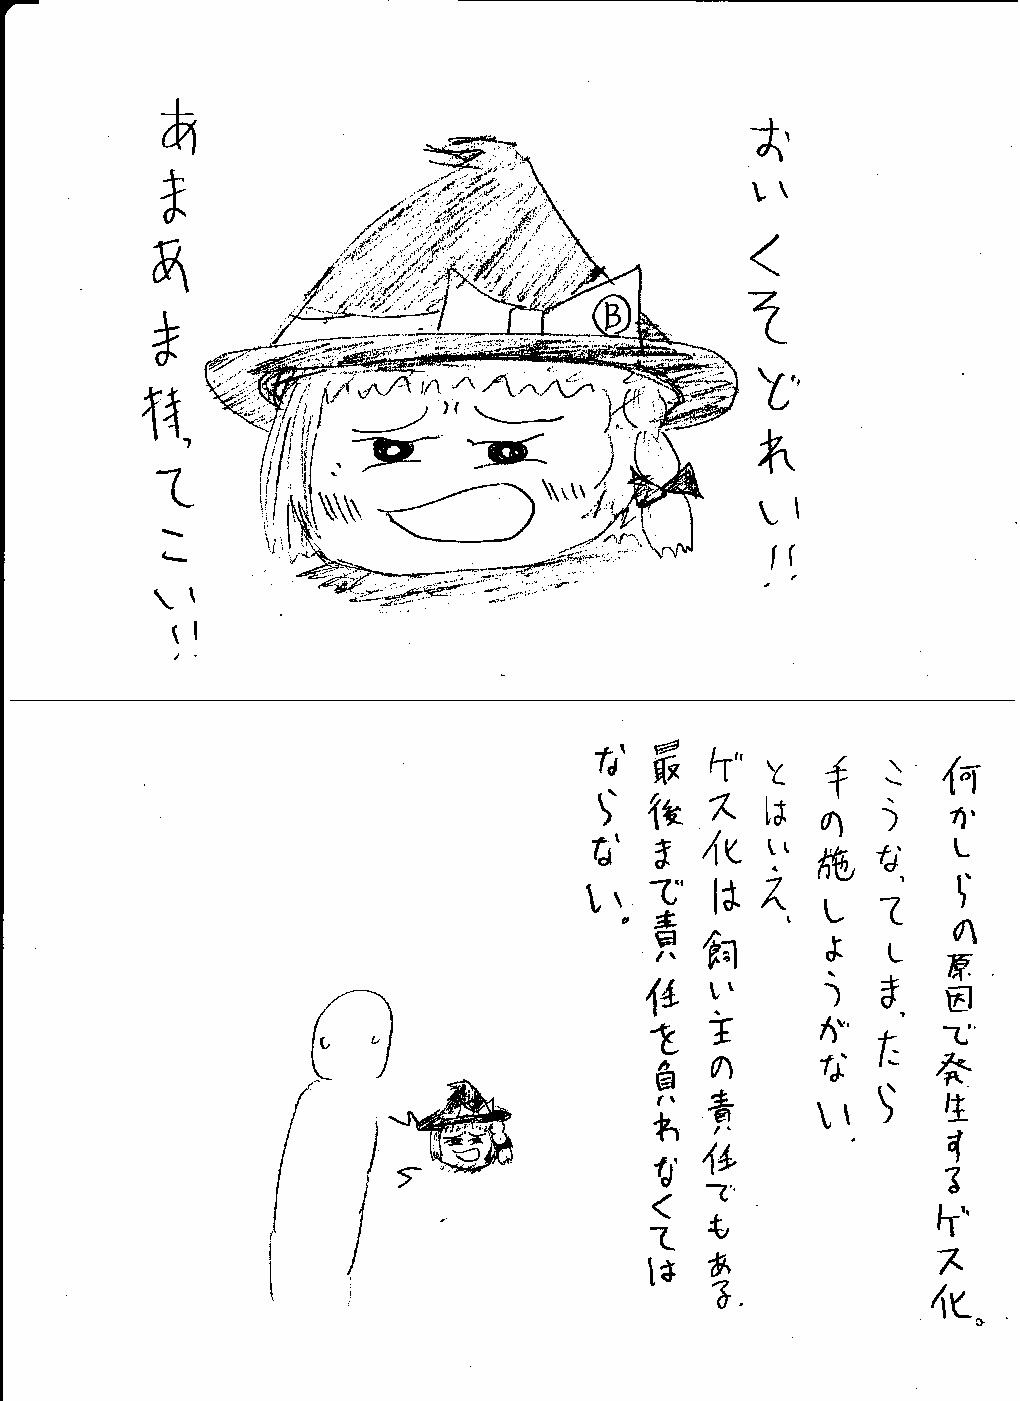 おいくそどれい!!
B
あまあま持ってこい!!
何かしらの原因で発生するゲス化。
こうなってしまったら
手の施しようがない。
とはいえ、
ゲス化は飼い主の責任でもある。
最後まで責任を負わなくては
ならない。